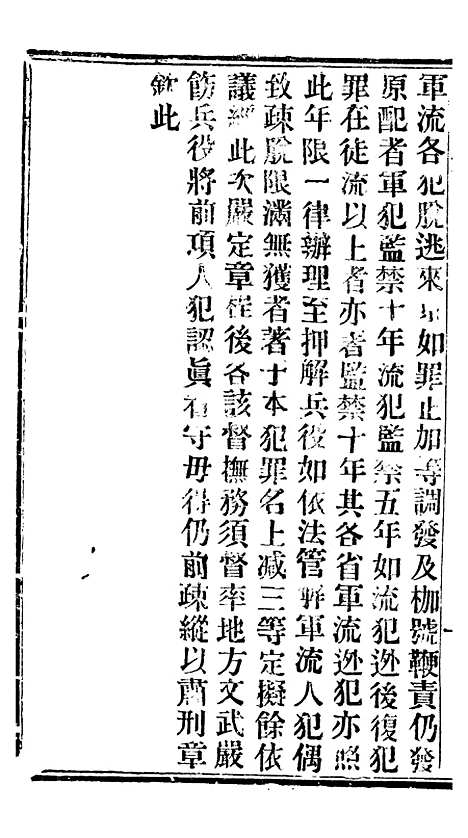 軍流各犯脫逃來京如罪止加等調發及枷號鞭責仍發
原配者軍犯監禁十年流犯監禁五年如流犯逃後復犯
罪在徒流以上者亦著監禁十年其各省軍流逃犯亦照
此年限一律辦理至押解兵役如依法管解軍流人犯偶
致疎脫限滿無獲者著于本犯罪名上减三等定擬餘依
議經此次嚴定章程後各該督撫務須督率地方文武嚴
飭兵役將前項人犯認眞看守毋得仍前疎縱以肅刑章
欽此